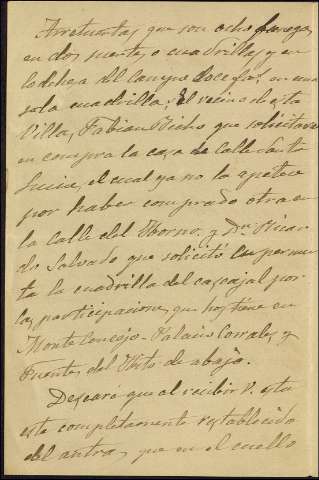 Arretuertas, que son ocho fanegas,
en dos suertes o cuadrillas y en
lo dehesa del Campo doce fas. en una
sola cuadrilla; El vecino de esta
Villa, Fabian Vicho que solicitava
en compra la casa de Calle Santa
Lucia, el cual ya no la apetece
por haber comprado otra en
la Calle del Horno, y Dn. Ricar
do Salvado que solicitó en permu
ta la cuadrilla del cascajal por
las participaciones que hoy tiene en
Monte Concejo, Palacio Corrales, y
Puentes del Soto de abajo.
Desearé que al recibir V. esta
este completamente restablecido
del antrax, que en el cuello